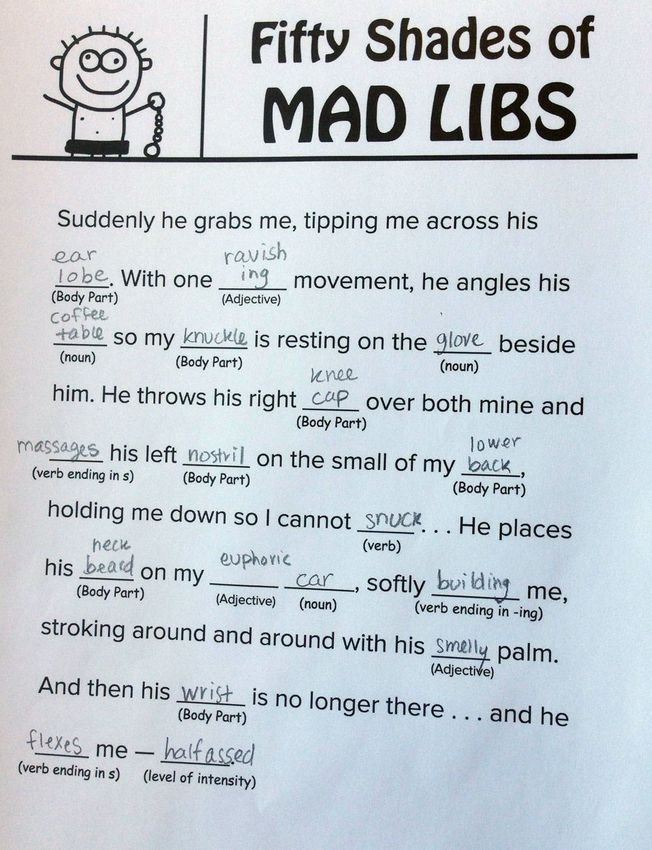 Fifty Shades of
MAD LIBS
Suddenly he grabs me, tipping me across his
ear lobe. With one ravishing movement, he angles his
(Body Part) (Adjective)
coffee table so my knuckle is resting on the glove beside
(noun) (Body Part) (noun)
him. He throws his right knee cap over both mine and
(Body Part)
massages his left nostril on the small of my lower back,
(verb ending in s) (Body Part) (Body Part)
holding me down so I cannot snuck. . . He places
(verb)
his neck beard on my euphoric car, softly building me,
(Body Part) (Adjective) (noun) (verb ending in -ing)
stroking around and around with his smelly palm.
(Adjective)
And then his wrist is no longer there . . . and he
(Body Part)
flexes me — halfassed.
(verb ending in s) (level of intensity)